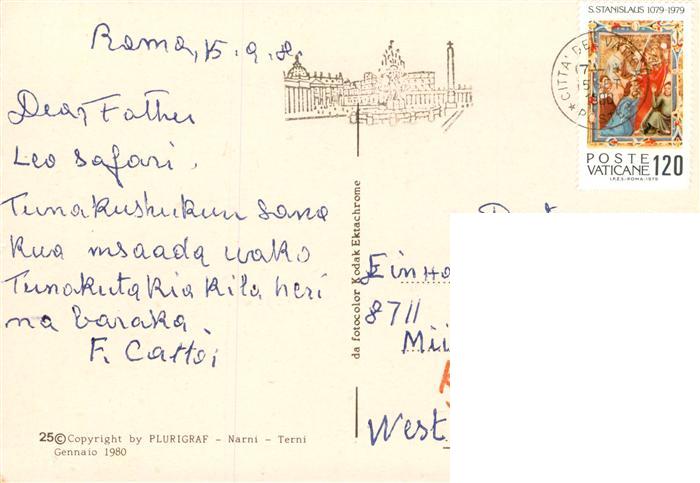 S. STANISLAUS 1079-1979
Roma, 15.9.80
CITTA' DEL VATICANO
POSTE
VATICANE 120
I.P.Z.S.-ROMA-1979
Dear Father
Leo Safari.
Tunakushukuru sana
kwa msaada wako
Tunakutakia kila heri
na baraka.
F. Cattoi
da fotocolor Kodak Ektachrome
Einho
8711
West
25 © Copyright by PLURIGRAF - Narni - Terni
Gennaio 1980